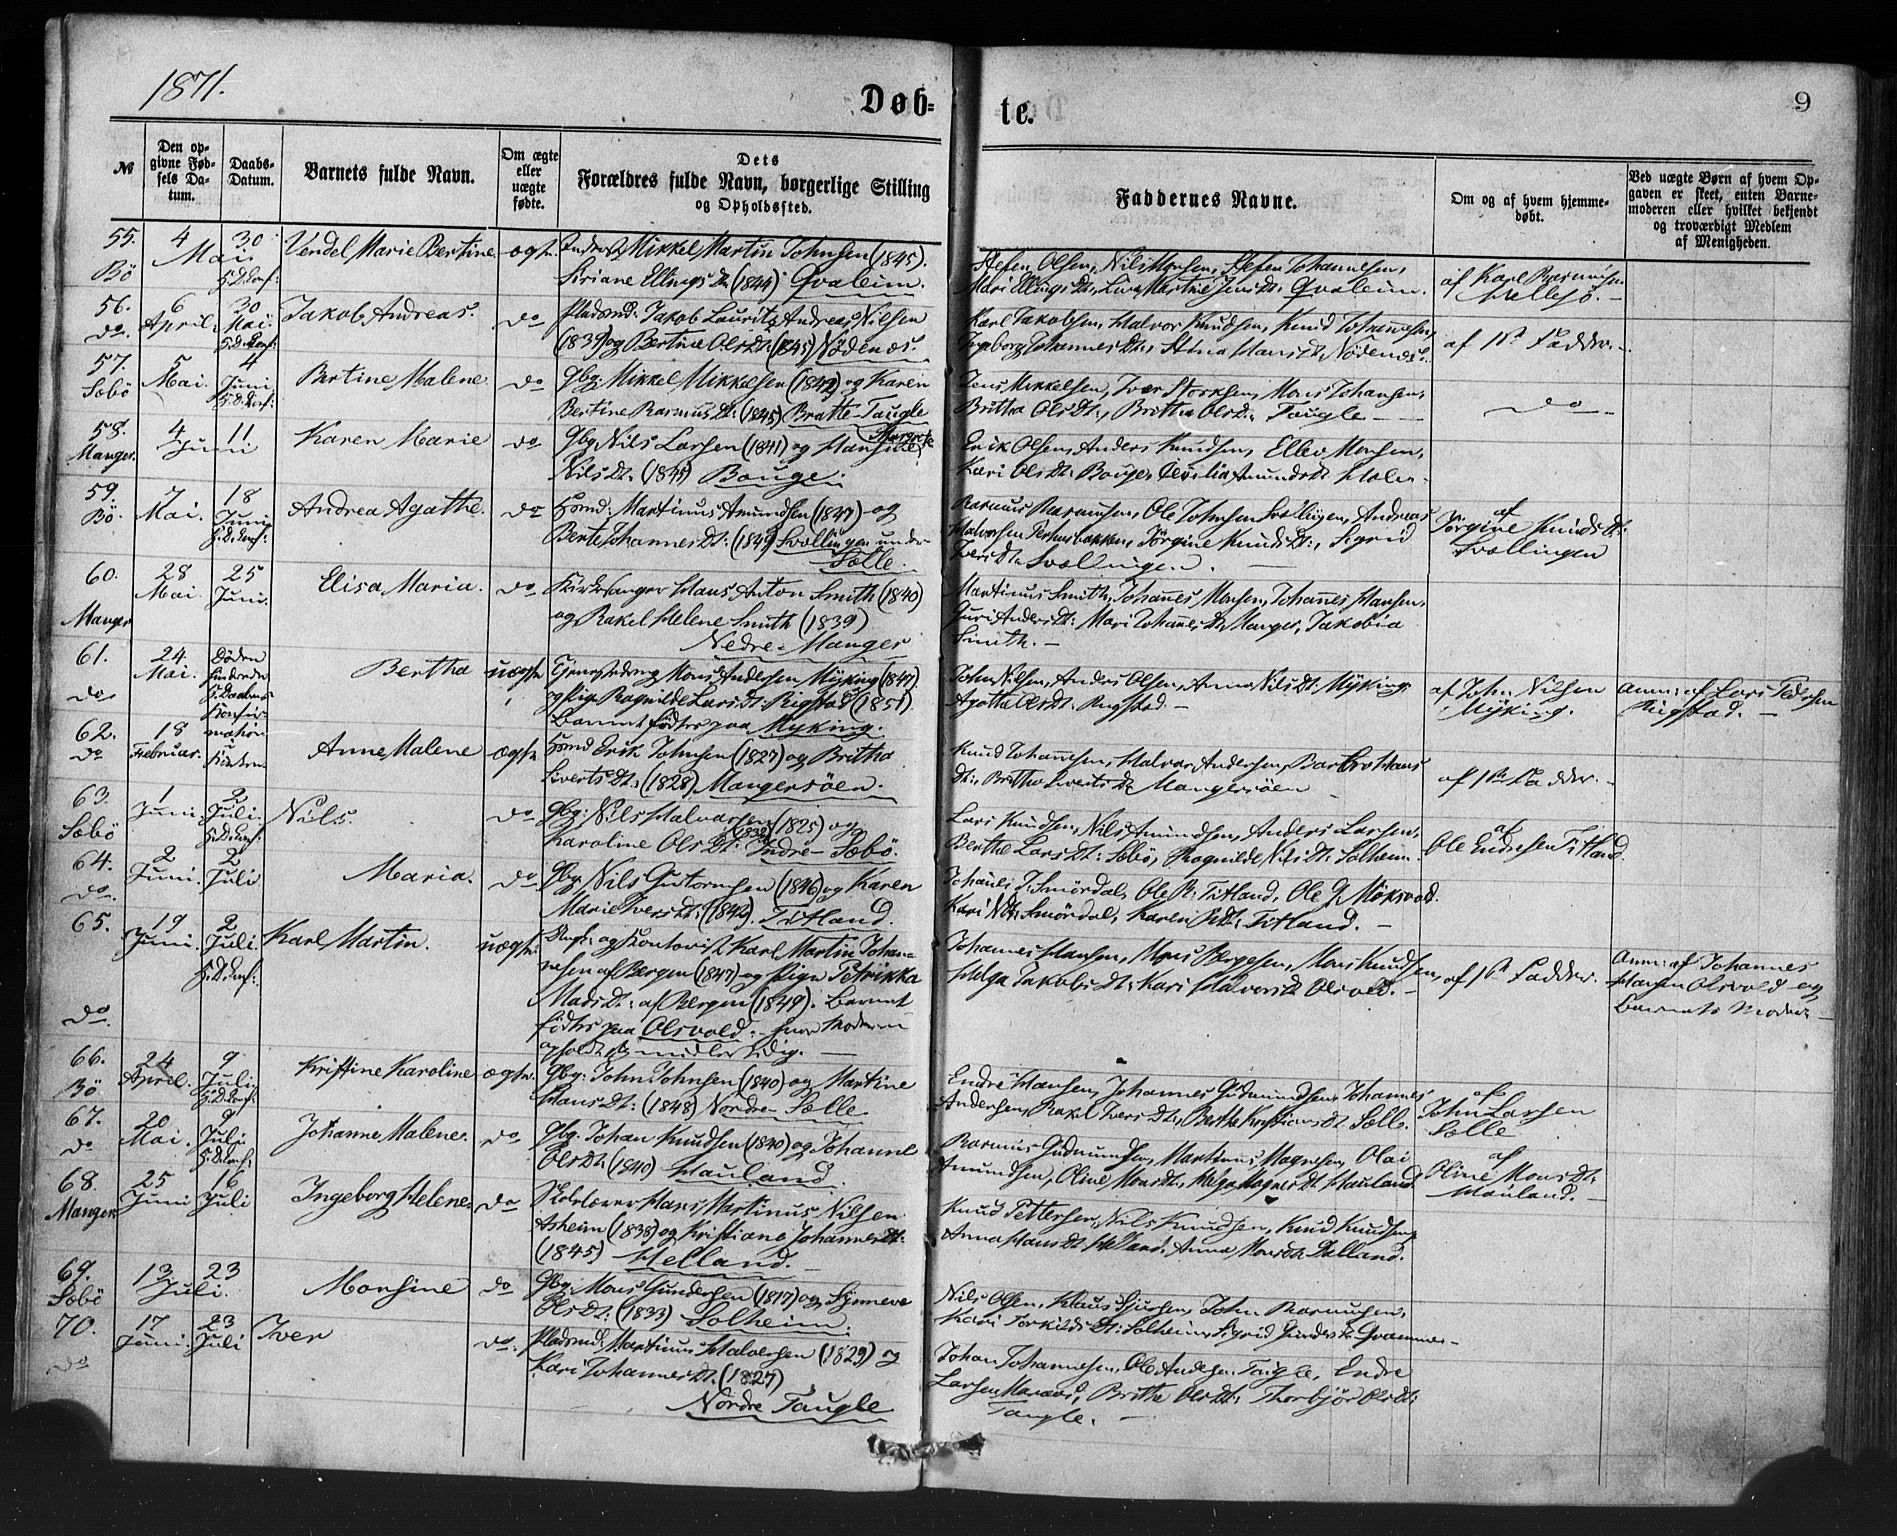 1871.
Døb-
te.
9
№
Den op-
givne Fød-
sels Da-
tum.
Daabs-
Datum.
Barnets fulde Navn.
Om ægte
eller
uægte
fødte.
Dets
Forældres fulde Navn, borgerlige Stilling
og Opholdssted.
Faddernes Navne.
Om og af hvem hjemme-
døbt.
Ved uægte Børn af hvem Op-
gaven er skeet, enten Barne-
moderen eller hvilket bekjendt
og troværdigt Medlem
af Menigheden.
55. Bö
4 Mai
30
Vendel Marie Bertine
ægte
Mikkel Martin Johnsen (1845).
Siriane Ellings Dt. (1844) Qvaleim.
Stefen Olsen, Nils Monsen, Stefen Johannesen,
Mari Ellings Dt., Qvaleim.
af Karl Rasmussen
56. do.
6 April
30 Mai.
Jakob Andreas.
do
Pladsmd. Jakob Lauritz Andreas Nilsen
(1839) og Bertine Ols Dt. (1845) Nödenæs.
Karl Jakobsen, Halvor Knudsen, Knud Johannesen,
Ingeborg Johannes Dt., Stina Hans Dt. Nödenæs.
af 1ste Fadder.
57. Sæbö
5 Mai.
4 Juni
Bertine Malene
do
Gbg. Mikkel Mikkelsen (1842) og Karen
Bertine Rasmus Dt. (1845) Bratte-Taugle
Jens Mikkelsen, Iver Storksen, Mons Johansen,
Britha Ols Dt., Britha Ols Dt. Taugle
do
58. Manger.
4 Juni
11
Karen Marie
do
Gbg. Nils Larsen (1841) og
Nils Dt. (1845) Bouge.
Erik Olsen, Anders Knudsen, Ellev Monsen,
Kari Ols Dt. Bouge, Cecilia Amunds Dt. Holm
59. Bö.
7 Mai.
18 Juni
Andrea Agathe.
do
Huusmd. Martinus Amundsen (1847) og
Berte Johannes Dt. (1849) Svellingen under
Sælle.
Rasmus Rasmussen, Ole Johnsen Svellingen, Andreas
Halvorsen, Jörgine Knuds Dt., Sigrid
Ivers Dt. Svellingen.
af
Jörgine Knuds Dt.
Svellingen
60. Manger
28 Mai.
25 Juni.
Elisa Maria.
do.
Kirkesanger Hans Anton Smith (1840)
og Rakel Helene Smith (1839)
Nedre-Manger
Martinus Smith, Johannes Monsen, Johannes Hansen,
Guri Anders Dt. Mari Johannes Dt. Manger, Jakobia
Smith.
61. do
24 Mai.
Bertha
uægte
Mons Andersen Myking (1847)
og Pige Ragnilde Lars Dt. Rigstad (1851).
Barnet födtes paa Myking.
John Nilsen, Anders Olsen, Anna Nils Dt. Myking.
Agathe Ols Dt. Rigstad.
af John Nilsen
Myking.
Anm: af Lars Pedersen
Rigstad.
62. do
18 Februar.
Anne Malene
ægte
Huusmd Erik Johnsen (1827) og Britha
Siverts Dt. (1828) Mangersöen.
Knud Johannesen, Halvor Andersen, Barbro Hans
Dt., Britha Siverts Dt. Mangersöen
af 1ste Fadder.
63. Sæbö
1 Juni
2 Juli.
Nils.
do
Gbg. Nils Halvorsen (1825) og
Karoline Ols Dt. (1832) Indre-Sæbö.
Lars Knudsen, Nils Amundsen, Anders Larsen,
Berthe Lars Dt. Sæbö, Ragnilde Nils Dt. Solheim.
af
Ole Endresen Titland.
64. do.
2 Juni.
2 Juli
Maria.
do
Gbg. Nils Guttormsen (1846) og Karen
Marie Ivers Dt. (1842). Titland.
Johannes J. Smördal, Ole R. Titland, Ole G. Möksvold.
Kari N Dt. Smördal, Karen E Dt. Titland.
65. do.
19 Juni.
2 Juli
Karl Martin.
uægte
Ungk. og Kontorist Karl Martin Johan-
nesen af Bergen (1847) og Pige Petrikka
Mads Dt. af Bergen (1849). Barnet
födtes paa Olsvold. hvor Moderen
opholdt sig midlertidig.
Johannes Hansen, Mons Børgesen, Mons Knudsen,
Helga Jakobs Dt. Kari Halvors Dt. Olsvold.
af 1ste Fadder.
Anm: af Johannes
Hansen Olsvold og
Barnets Moder
66. Bö
24 April.
9 Juli
Kristine Karoline
ægte.
Gbg. John Johnsen (1840) og Martine
Hans Dt. (1848) Nordre Sælle
Endre Hansen, Johannes Gudmundsen, Johannes
Andersen, Rakel Ivers Dt., Berthe Kristians Dt. Sælle.
af
John Larsen
Sælle
67. do
20 Mai.
9 Juli
Johanne Malene.
do
Gbg. Johan Knudsen (1840) og Johanne
Ols Dt. (1840) Hauland.
Rasmus Gudmundsen, Martinus Magnesen, Olai
Amundsen, Oline Mons Dt., Helga Magnes Dt. Hauland
af
Oline Mons Dt.
Hauland.
68. Manger
25 Juni
16 Juli
Ingeborg Helene.
do
Skolelærer Hans Martinus Nilsen
Askeim (1838) og Kristiane Johannes Dt.
(1845) Helland.
Knud Pettersen, Nils Knudsen, Knud Knudsen,
Anna Hans Dt. Helland, Anna Mons Dt. Dalland.
69. Sæbö
13 Juli.
23
Monsine
do
Gbg. Mons Gundersen (1817) og Synneve
Ols Dt. (1833) Solheim.
Nils Olsen, Klaus Sjursen, John Rasmussen,
Kari Torkilds Dt. Solheim, Sigrid Dt. Qvamme
70. do
17 Juni.
23 Juli
Iver
do.
Pladsmd. Martinus Halvorsen (1829) og
Kari Johannes Dt. (1827)
Nordre Taugle
Johan Johannesen, Ole Andersen Taugle, Endre
Larsen, Britha Ols Dt. Thorbjör Ols Dt.
Taugle.